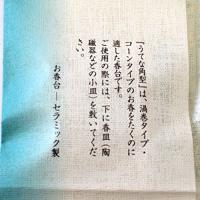 『うてな角型』は、渦巻タイプ・
コーンタイプのお香をたくのに
適した香台です。
ご使用の際には、下に香皿(陶
磁器などの小皿)を敷いてくだ
さい。
お香台―セラミック製